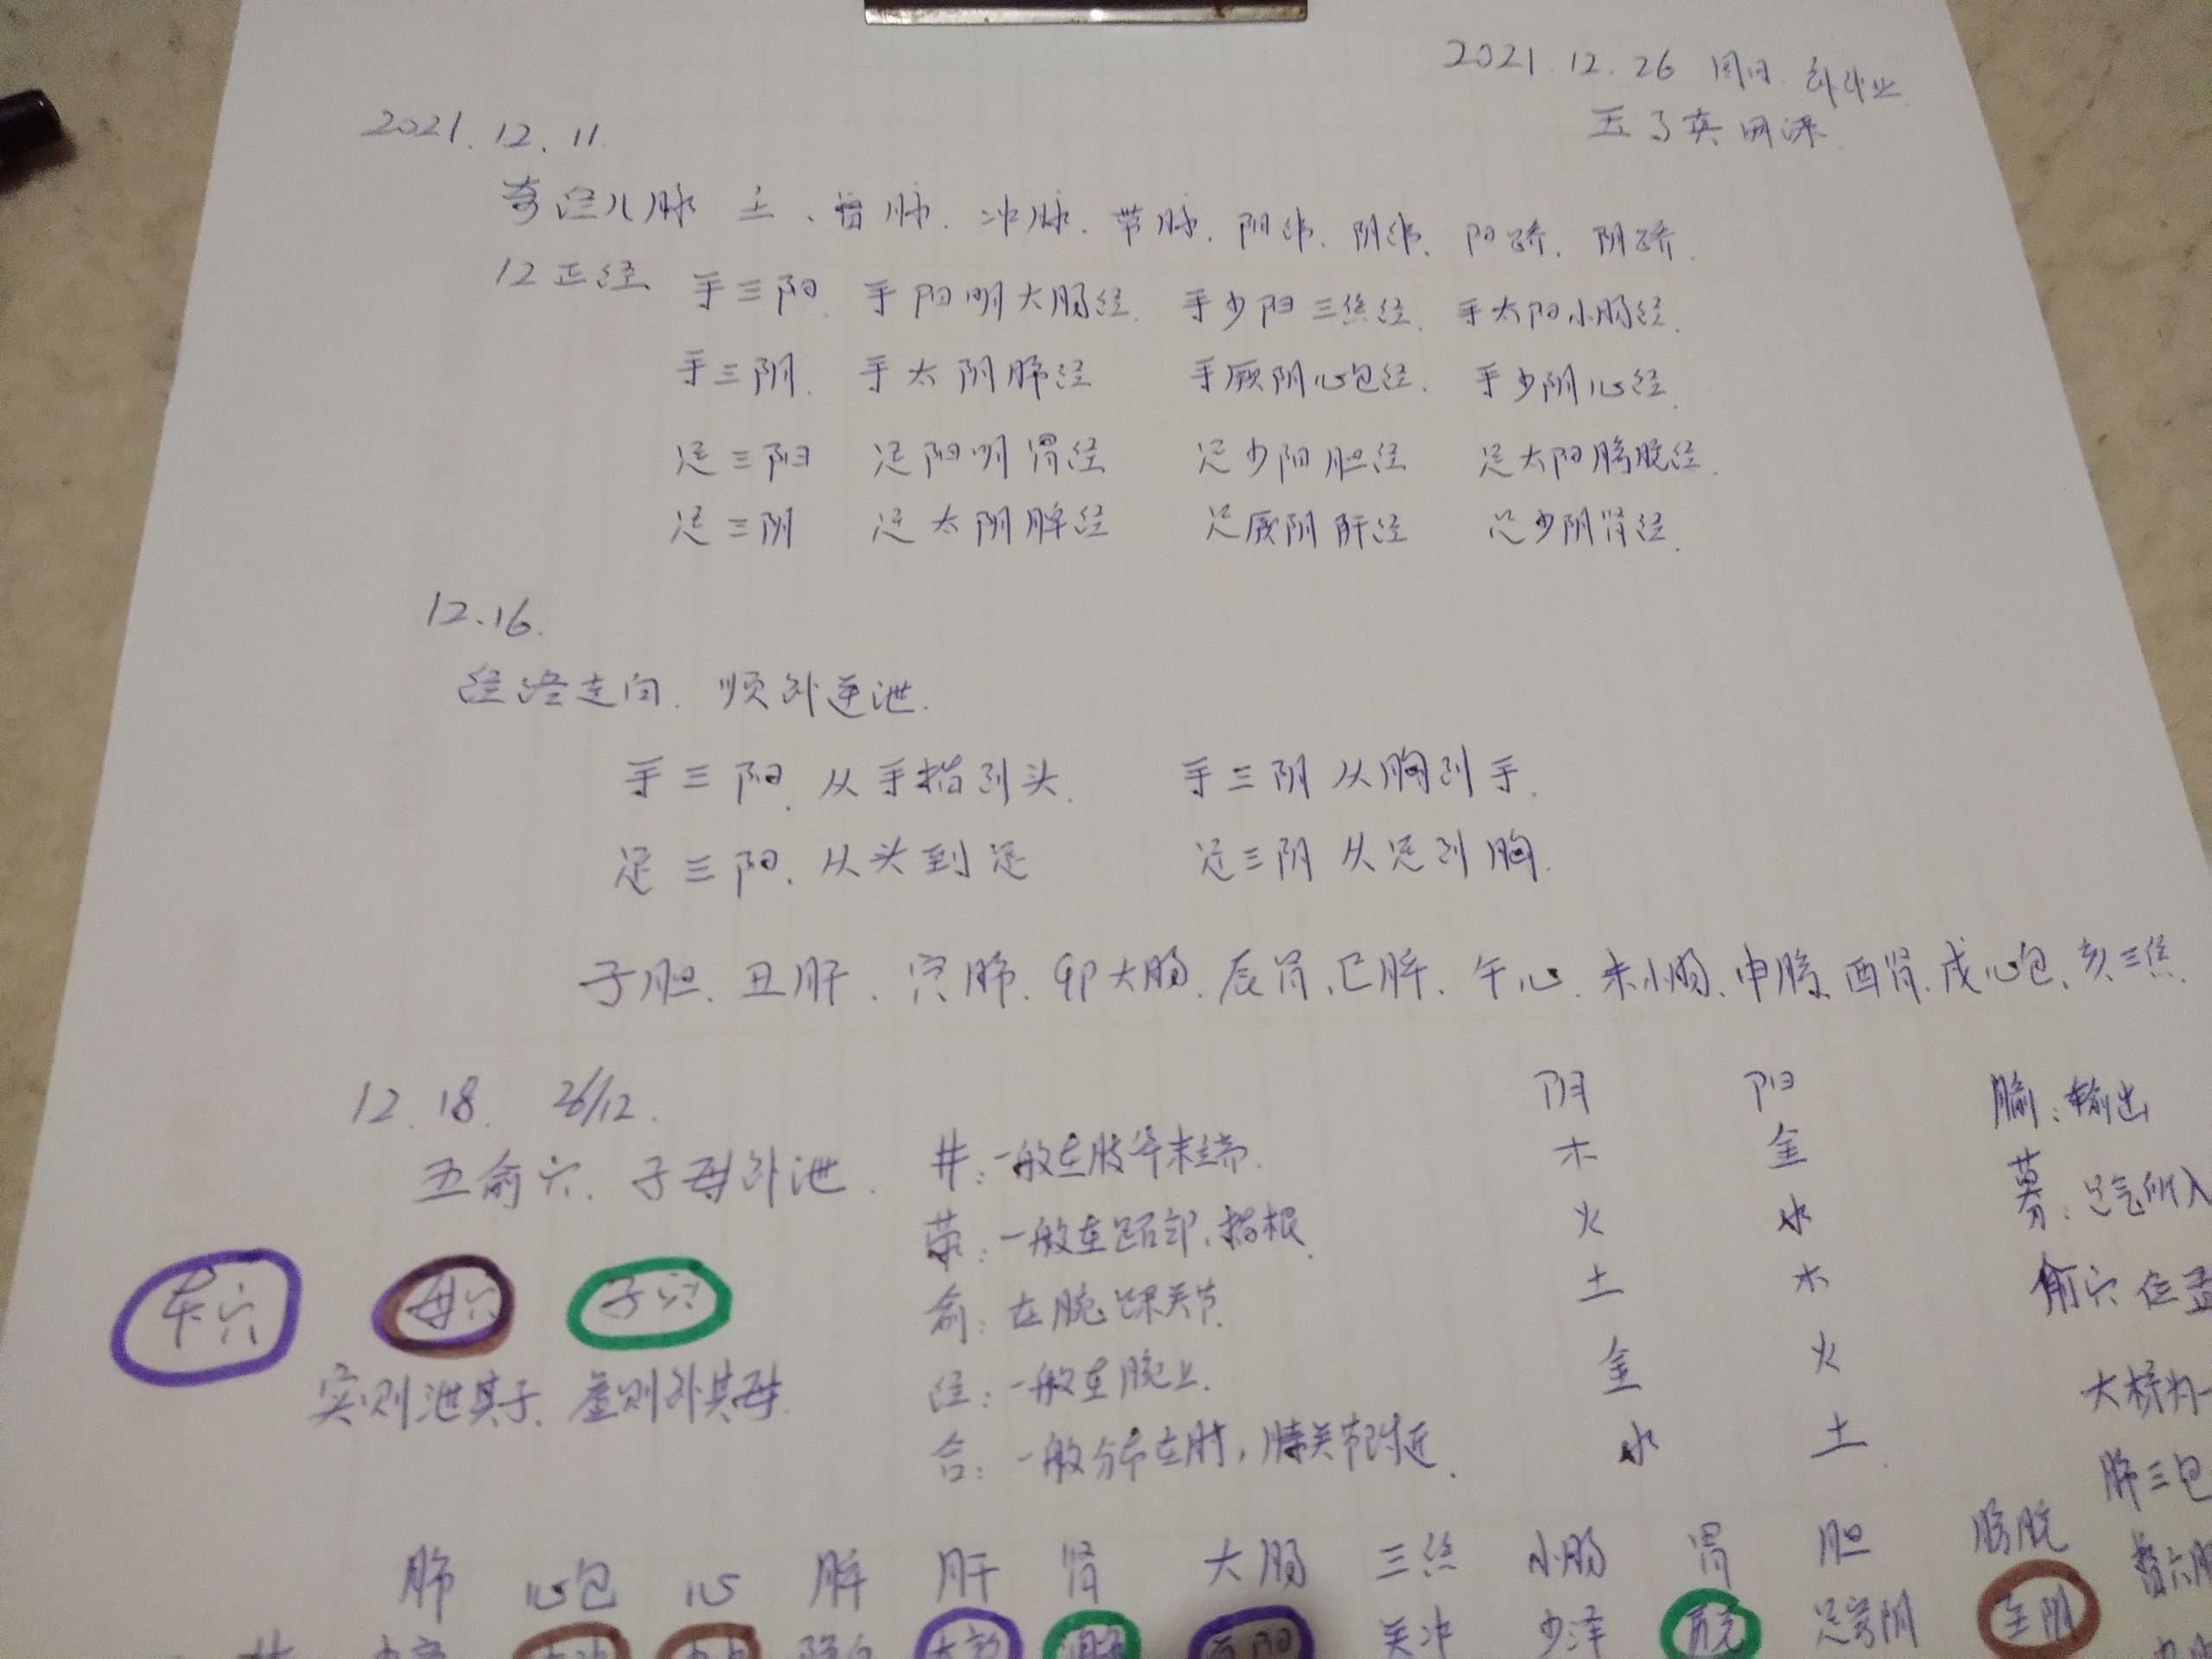 2021.12.26 周日
2021.12.11.
奇经八脉 督脉. 冲脉. 带脉. 阴维. 阴维. 阳跷. 阴跷.
12正经 手三阳. 手阳明大肠经. 手少阳三焦经. 手太阳小肠经.
手三阴. 手太阴肺经 手厥阴心包经. 手少阴心经.
足三阳 足阳明胃经 足少阳胆经 足太阳膀胱经.
足三阴 足太阴脾经 足厥阴肝经 足少阴肾经.
12.16.
经络走向. 顺补逆泄.
手三阳. 从手指到头. 手三阴从胸到手.
足三阳. 从头到足 足三阴从足到胸.
子胆、丑肝、寅肺、卯大肠、辰胃、巳脾、午心、未小肠、申膀、酉肾、戌心包、亥三焦.
12.18. 26/12.
阴 阳 腧:输出
五俞穴. 子母补泄. 井:一般在肢华末端. 木 金
荥:一般在 指根. 火 水 募:
本穴 母穴 子穴 俞:在腕踝关节. 土 木 俞穴位置
实则泄其子、虚则补其母. 经:一般在腕上. 金 火
合:一般分布在肘,膝关节附近. 水 土
肺 心包 心 脾 肝 肾 大肠 三焦 小肠 胃 胆 膀胱
井 隐白 关冲 少泽 厉兑 足窍阴 至阴